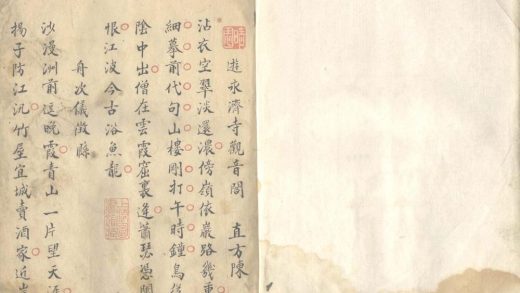 遊永濟寺觀音閣 直方陳
沾衣空翠淡還濃傍嶺依巖路幾重
細摹前代句山樓剛打午時鐘鳥
陰中出僧在雲霞窟裏逢蕭瑟憑闌
恨江波今古浴魚龍
舟次儀徵縣
沙漫洲前逗晚霞青山一片望天涯
揚子防江汛竹屋宜城賣酒家近